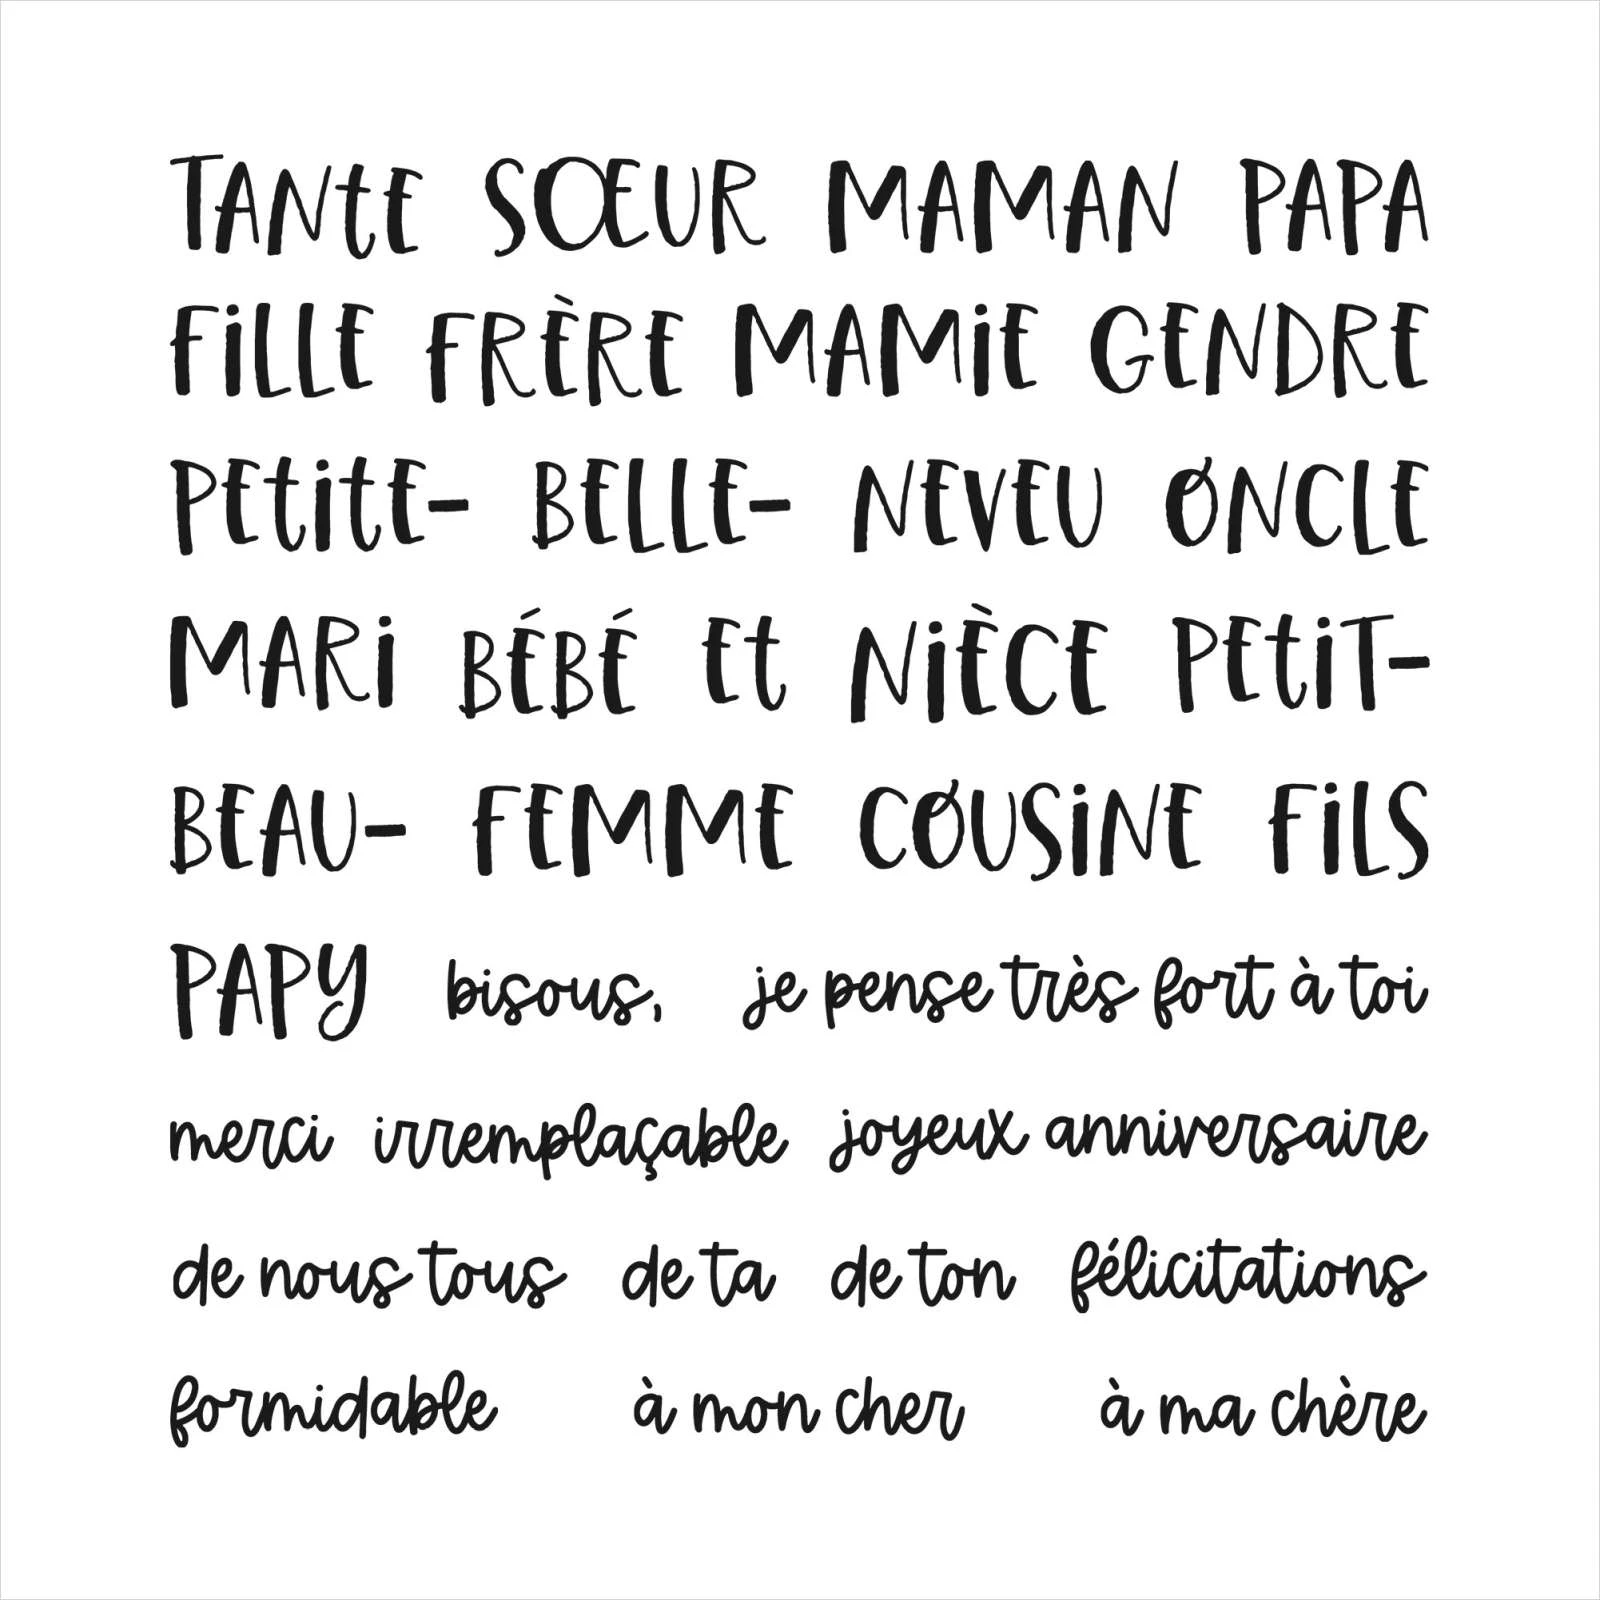 TANtE SŒUR MAMAN PAPA
FiLLE FRÈRE MAMiE GENDRE
PEtitE- BELLE- NEVEU ONCLE
MARi BÉBÉ Et NiÈCE PEtiT-
BEAU- FEMME COUSiNE FiLS
PAPY bisous, je pense très fort à toi
merci irremplaçable joyeux anniversaire
de nous tous de ta de ton félicitations
formidable à mon cher à ma chère